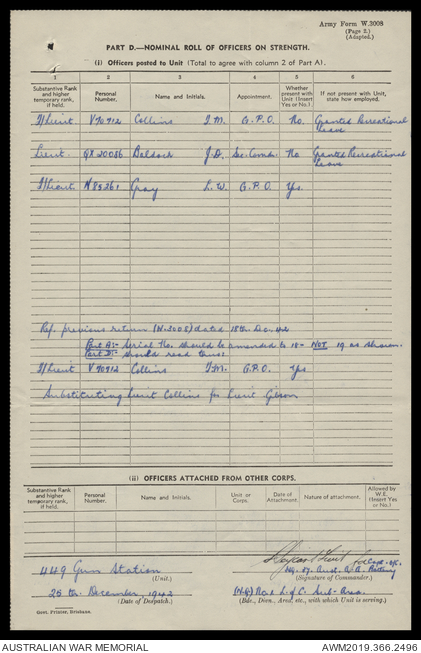 Army Form W.3008
(Page 2.)
(Adapted.)
PART D.—NOMINAL ROLL OF OFFICERS ON STRENGTH.
(i) Officers posted to Unit (Total to agree with column 2 of Part A).
1 2 3 4 5 6
Substantive Rank and higher temporary rank, if held. Personal Number. Name and Initials. Appointment. Whether present with Unit (Insert Yes or No.). If not present with Unit, state how employed.
T/Lieut V70912 Collins I.M. G.P.O. No. Granted Recreational
Leave
Lieut. QX20086 Baldock J.D. Sec. Comdr. No Granted Recreational
Leave
T/Lieut. N85261 Gray L.W. G.P.O. Yes.
Ref. previous return (W.3008) dated 18th Dec, 42
Part A:- Serial No. should be amended to 18 - NOT 19 as shown.
Part D:- should read thus:
T/Lieut V70912 Collins I.M. G.P.O. Yes
Substituting Lieut Collins for Lieut Gibson
(ii) OFFICERS ATTACHED FROM OTHER CORPS.
Substantive Rank and higher temporary rank, if held. Personal Number. Name and Initials. Unit or Corps. Date of Attachment. Nature of attachment. Allowed by W.E. (Insert Yes or No.).
Lieut for Capt. OC.
449 Gun Station Aust. A.A. Battery
(Unit.) (Signature of Commander.)
25 th. December, 1942 No 1 L. of C. Sub-Area.
(Date of Despatch.) (Bde., Divn., Area, etc., with which Unit is serving.)
Govt. Printer, Brisbane.
AUSTRALIAN WAR MEMORIAL AWM2019.366.2496